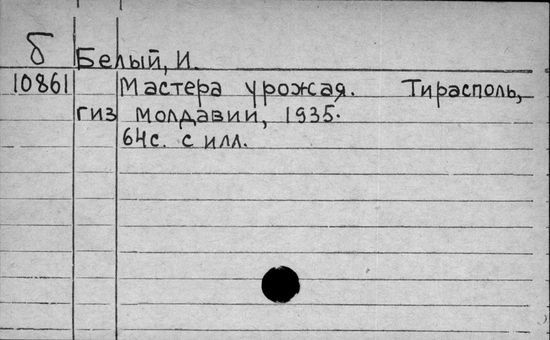 б
Белый, И.
10861 Мастера урожая. Тирасполь,
гиз Молдавии, 1935.
64с. с илл.